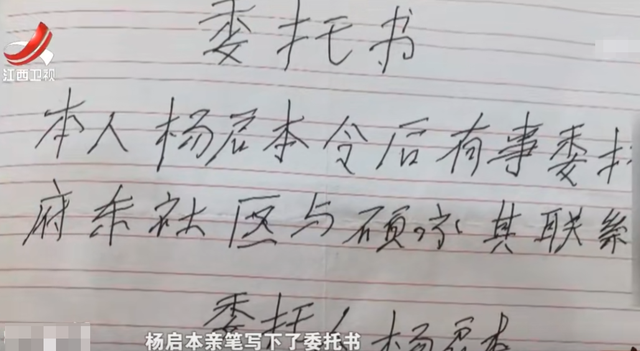 江西卫视
委托书
本人杨启本今后有事委托
府东社区与硕冰其联系
委托人杨启本
杨启本亲笔写下了委托书